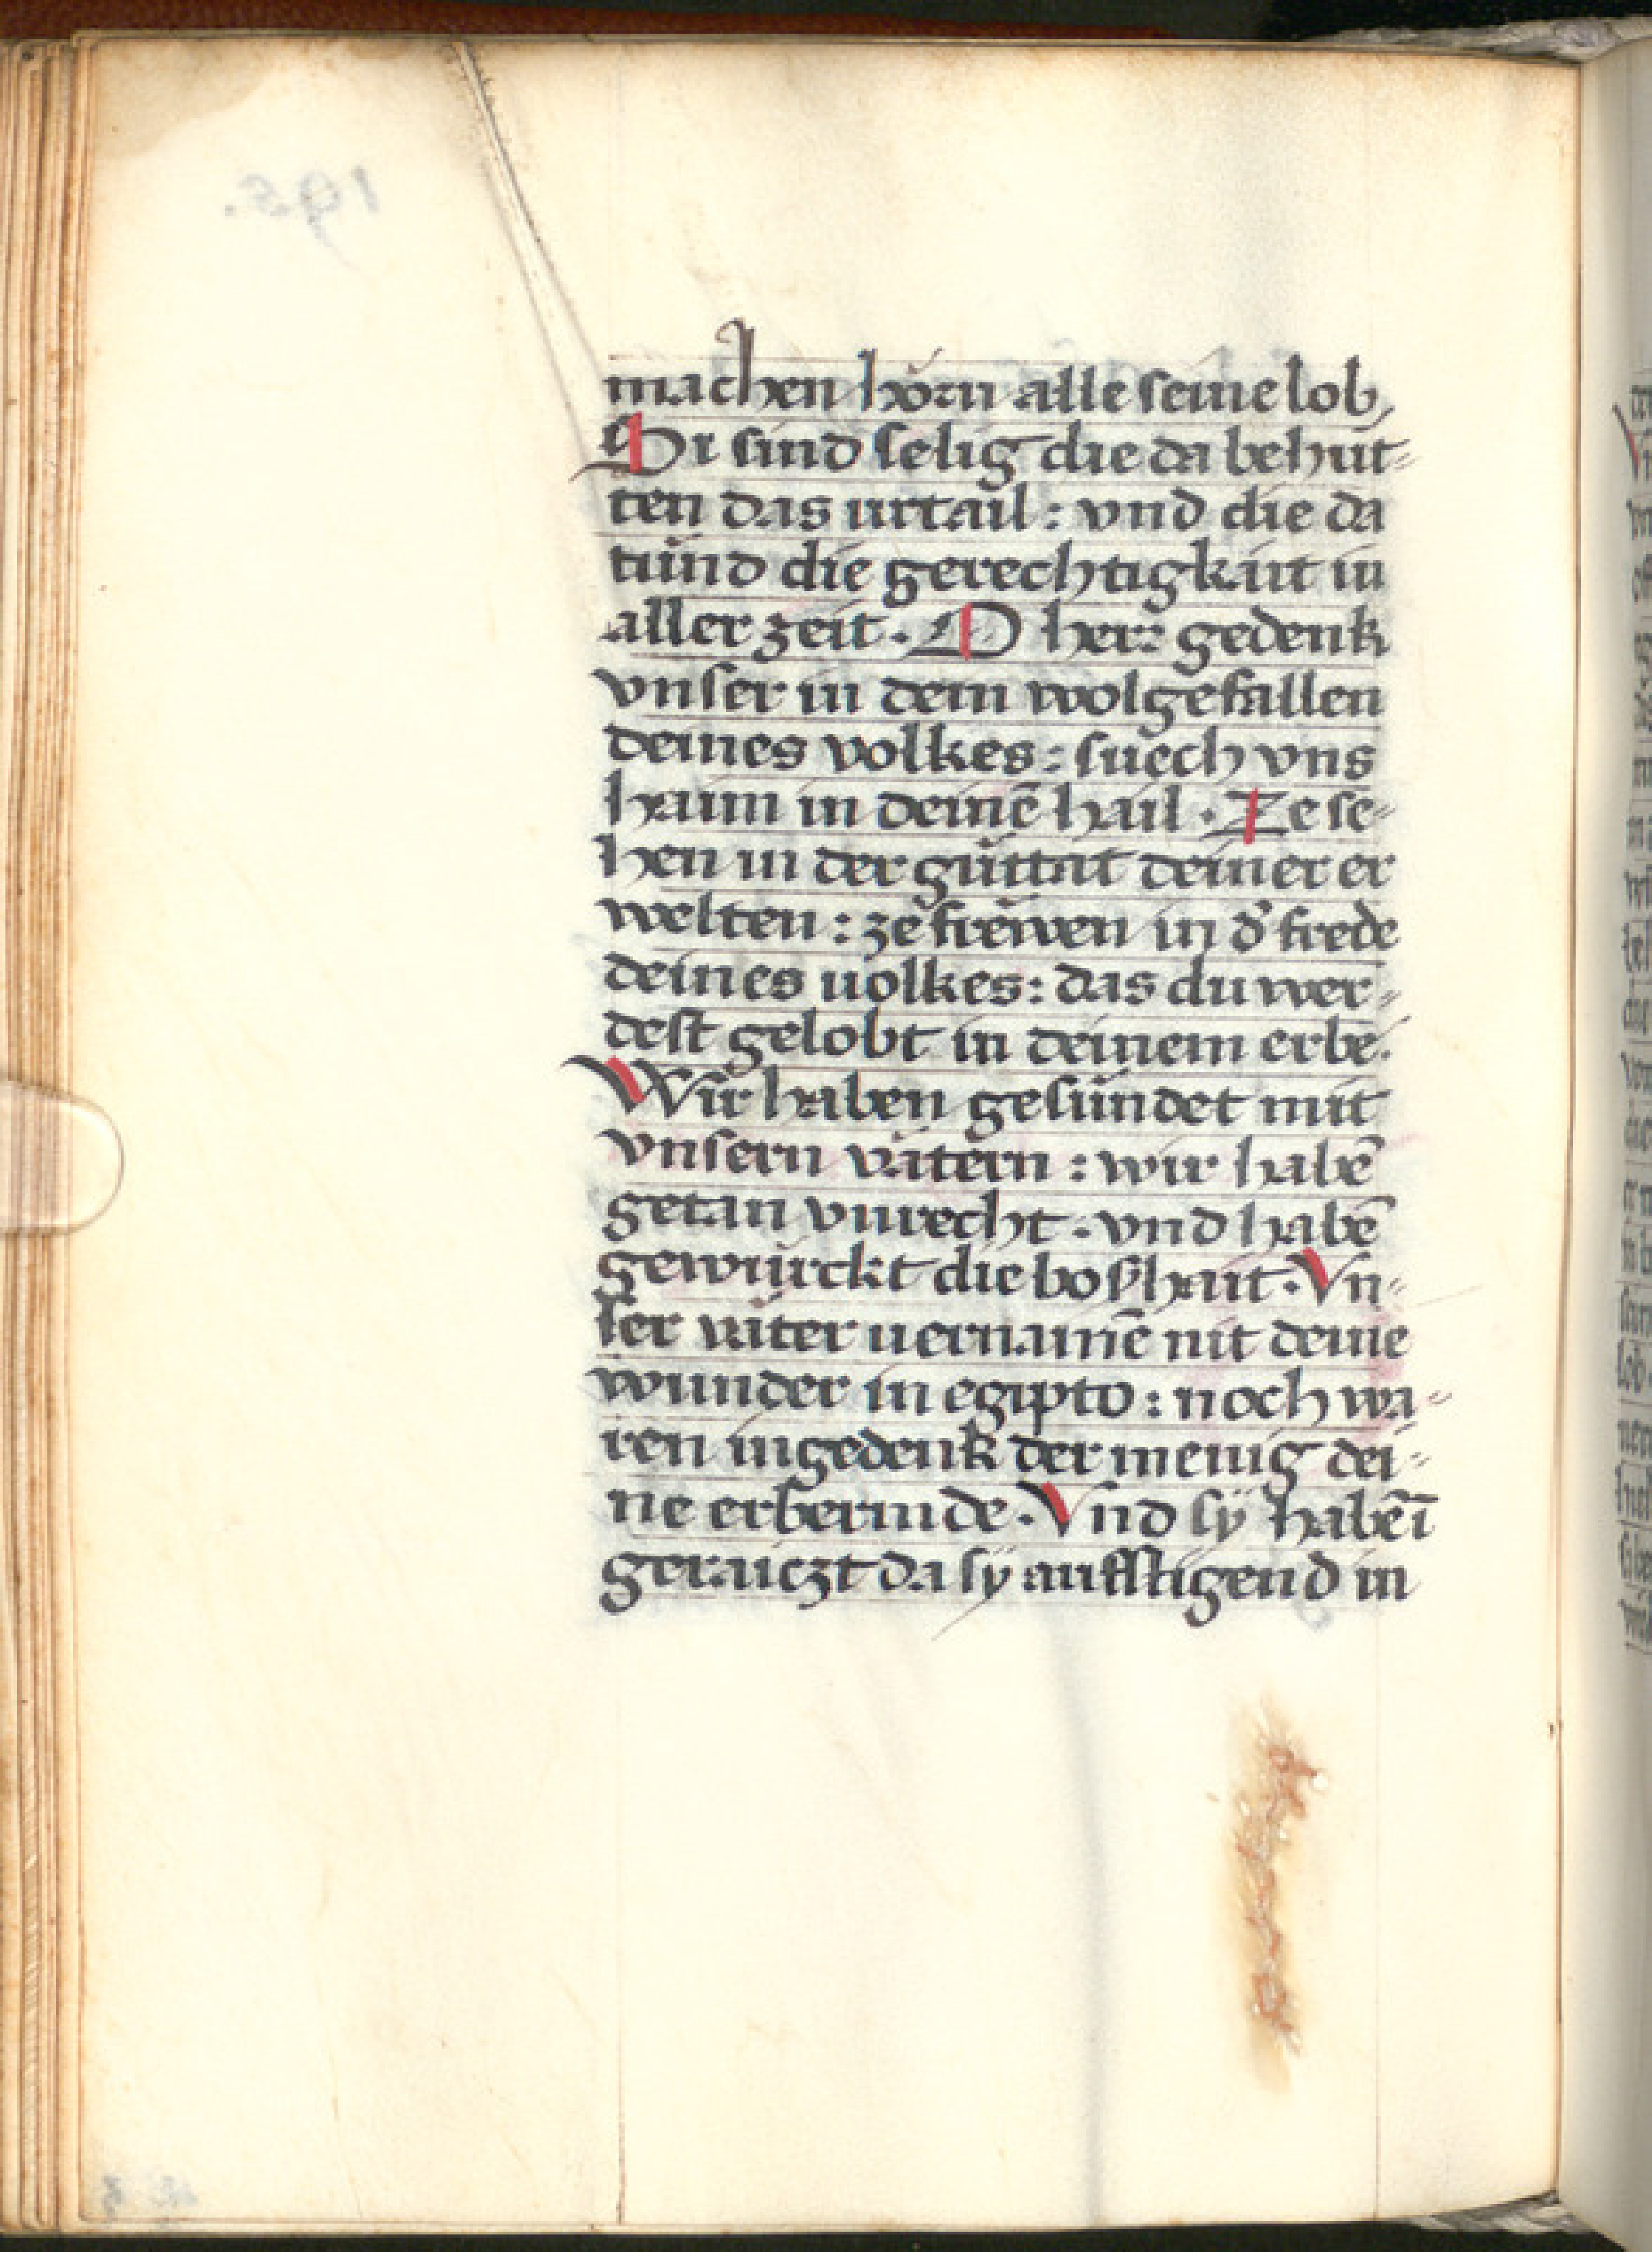 machen hörn alle seine lob,
Si sind selig die da behüt⸗
ten das urtail : vnd die da
tůnd die gerechtigkait in
aller zeit . O herr gedenk
vnser in dem wolgefallen
deines volkes : sůech vns
haim in deinē hail . Ze se⸗
hen in der gůttat deiner er
welten : ze frëwen in dˀ frede
deines uolkes : das du wer⸗
dest gelobt in deinem erbe .
Wir haben gesündet mit
vnsern vätern : wir habē
getan vnrecht . vnd habē
gewürckt die boßhait . Vn⸗
ser väter uernamē nit deine
wunder in egipto : noch wa⸗
ren ingedenk der menig dei⸗
ne erbermde . Vnd sÿ habē̄ı
geraiczt da sÿ auffstigend in